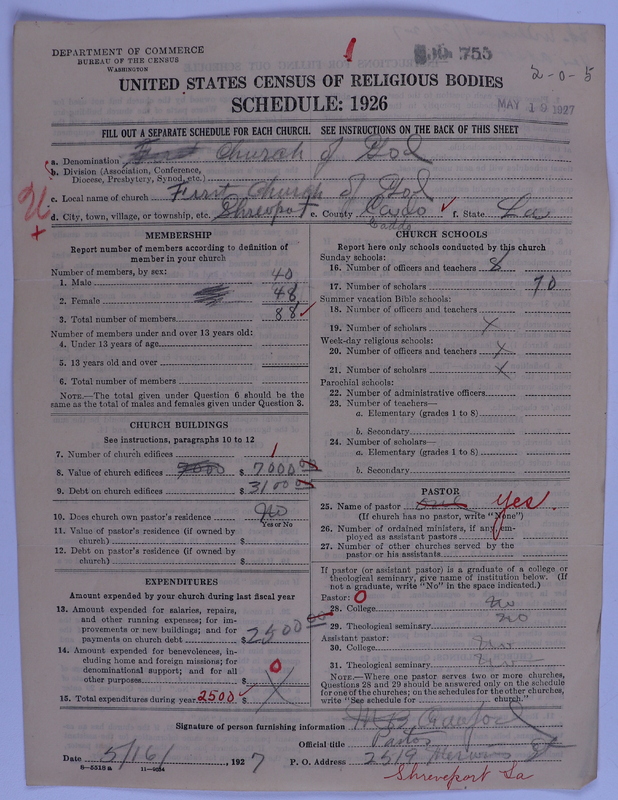 DEPARTMENT OF COMMERCE
BUREAU OF THE CENSUS
WASHINGTON
1
755
2-0-5
UNITED STATES CENSUS OF RELIGIOUS BODIES
SCHEDULE: 1926
MAY 19 1927
FILL OUT A SEPARATE SCHEDULE FOR EACH CHURCH. SEE INSTRUCTIONS ON THE BACK OF THIS SHEET
a. Denomination First Church of God
b. Division (Association, Conference, Diocese, Presbytery, Synod, etc.)
c. Local name of church First Church of God
d. City, town, village, or township, etc. Shrevport e. County Caddo f. State La
Caddo
MEMBERSHIP
Report number of members according to definition of member in your church
Number of members, by sex:
1. Male 40
2. Female 48
3. Total number of members 88
Number of members under and over 13 years old:
4. Under 13 years of age
5. 13 years old and over
6. Total number of members
NOTE.—The total given under Question 6 should be the same as the total of males and females given under Question 3.
CHURCH BUILDINGS
See instructions, paragraphs 10 to 12
7. Number of church edifices 1
8. Value of church edifices $ 7000 00
9. Debt on church edifices $ 3100 00
10. Does church own pastor's residence No
Yes or No
11. Value of pastor's residence (if owned by church) $
12. Debt on pastor's residence (if owned by church) $
EXPENDITURES
Amount expended by your church during last fiscal year
13. Amount expended for salaries, repairs, and other running expenses; for improvements or new buildings; and for payments on church debt $ 2500 00
14. Amount expended for benevolences, including home and foreign missions; for denominational support; and for all other purposes $ 0
15. Total expenditures during year 2500 $
CHURCH SCHOOLS
Report here only schools conducted by this church
Sunday schools:
16. Number of officers and teachers 8
17. Number of scholars 70
Summer vacation Bible schools:
18. Number of officers and teachers
19. Number of scholars X
Week-day religious schools:
20. Number of officers and teachers X
21. Number of scholars X
Parochial schools:
22. Number of administrative officers
23. Number of teachers—
a. Elementary (grades 1 to 8)
b. Secondary
24. Number of scholars—
a. Elementary (grades 1 to 8)
b. Secondary
PASTOR
25. Name of pastor yes.
(If church has no pastor, write "None")
26. Number of ordained ministers, if any, employed as assistant pastors
27. Number of other churches served by the pastor or his assistants
If pastor (or assistant pastor) is a graduate of a college or theological seminary, give name of institution below. (If not a graduate, write "No" in the space indicated.)
Pastor: 0
28. College no
29. Theological seminary no
Assistant pastor:
30. College no
31. Theological seminary no
NOTE.—Where one pastor serves two or more churches, Questions 28 and 29 should be answered only on the schedule for one of the churches; on the schedules for the other churches, write "See schedule for church."
Signature of person furnishing information
Official title Pastor
Date 5/16/, 1927 P. O. Address 2519 St
8-5518a 11-9284
Shreveport La